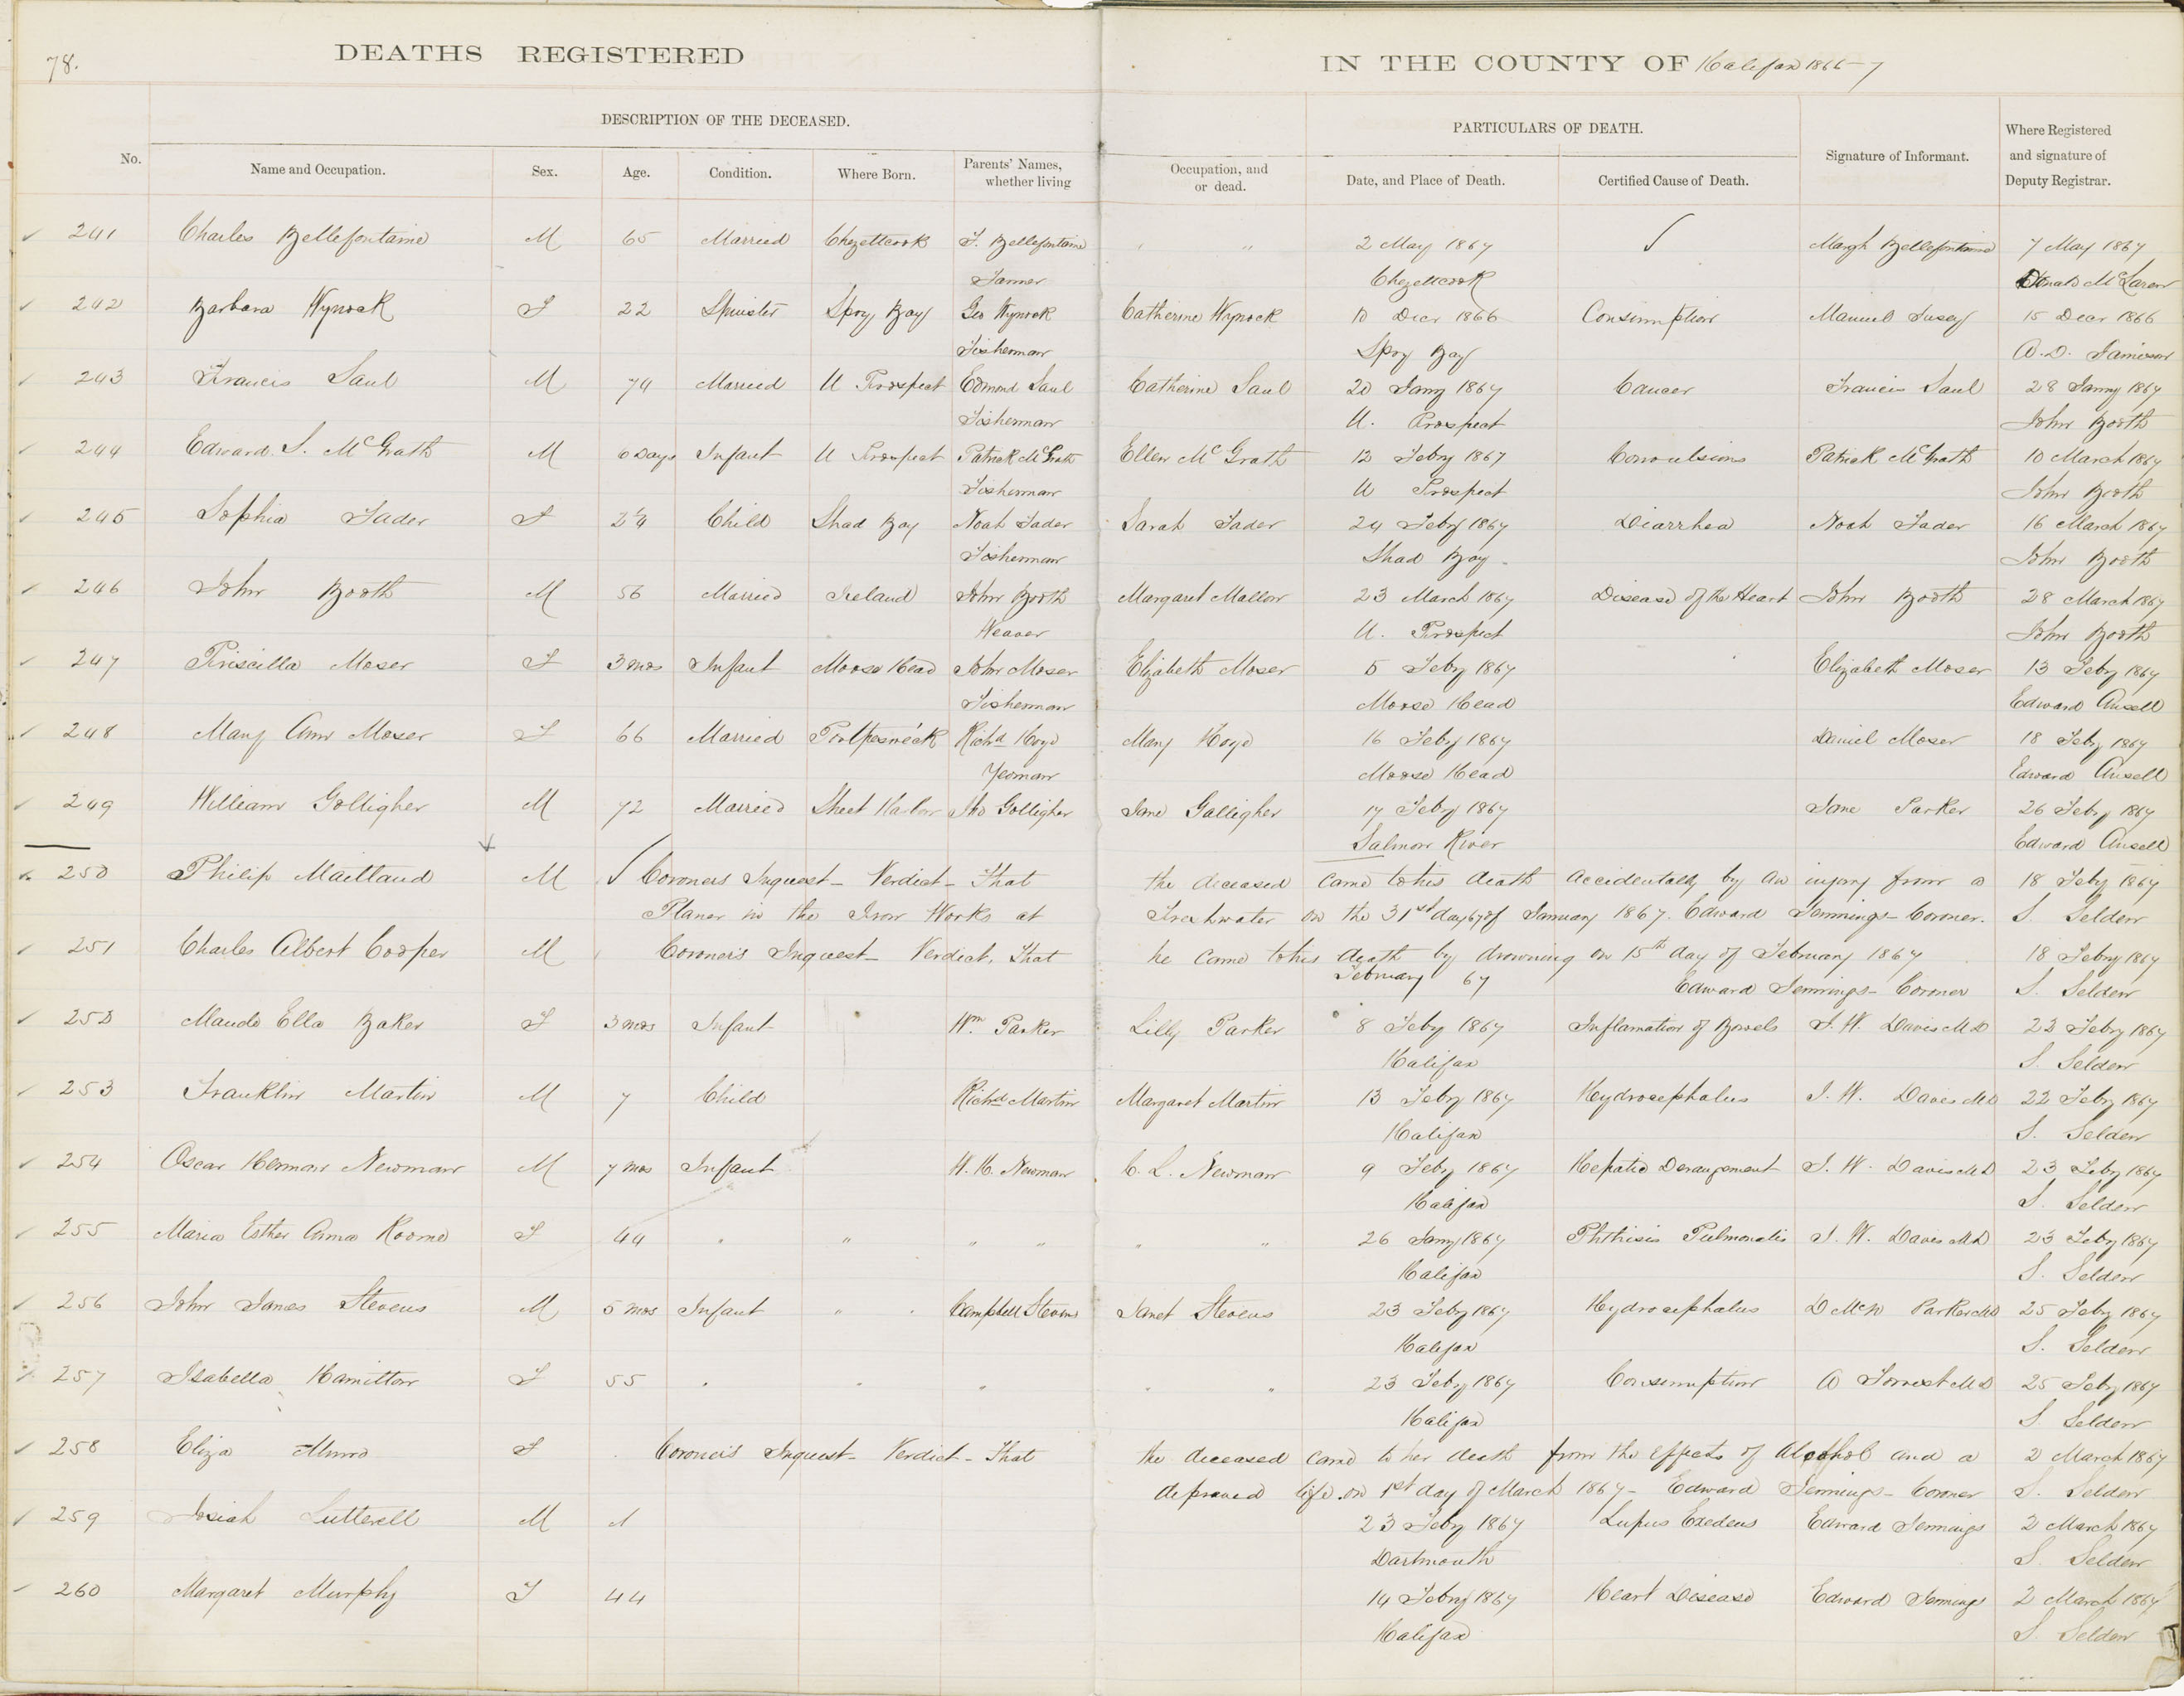 78.
DEATHS REGISTERED IN THE COUNTY OF Halifax 1866-7
DESCRIPTION OF THE DECEASED. PARTICULARS OF DEATH.
No. Name and Occupation. Sex. Age. Condition. Where Born. Parents' Names, whether living Occupation, and or dead. Date, and Place of Death. Certified Cause of Death. Signature of Informant. Where Registered and signature of Deputy Registrar.
241 Charles Bellefontaine M 65 Married Chezettcook J. Bellefontaine " " 2 May 1867 Margt Bellefontaine 7 May 1867
Farmer Chezettcook Donald McLaren
242 Barbara Wynock F 22 Spinster Spry Bay Geo Wynock Catherine Wynock 10 Decr 1866 Consumption Manuel 15 Decr 1866
Fisherman Spry Bay A.D. Jamieson
243 Francis Saul M 74 Married U Prospect Edmond Saul Catherine Saul 20 Jany 1867 Cancer Francis Saul 28 Jany 1867
Fisherman U. Prospect John Booth
244 Edward S. McGrath M 6 Days Infant U Prospect Patrick McGrath Ellen McGrath 12 Feby 1867 Convulsions Patrick McGrath 10 March 1867
Fisherman U Prospect John Booth
245 Sophia Fader F Child Shad Bay Noah Fader Sarah Fader 24 Feby 1867 Diarrhea Noah Fader 16 March 1867
Fisherman Shad Bay John Booth
246 John Booth M 56 Married Ireland John Booth Margaret Mallon 23 March 1867 Disease of the Heart John Booth 28 March 1867
Weaver U. Prospect John Booth
247 Priscilla Moser F 3 mos Infant Moose Head John Moser Elizabeth Moser 5 Feby 1867 Elizabeth Moser 13 Feby 1867
Fisherman Moose Head Edward Ansell
248 Mary Ann Moser F 66 Married Portpeswick Richd Mary 16 Feby 1867 Daniel Moser 18 Feby 1867
Yeoman Moose Head Edward Ansell
249 William Golligher M 72 Married Sheet Harbor Jno Golligher Jane Galligher 17 Feby 1867 Jane Parker 26 Feby 1867
Salmon River Edward Ansell
250 Philip Maitland M Coroners Inquest - Verdict - That the deceased came to his death accidentally by an injury from a 18 Feby 1867
Planer in the Iron Works at Freshwater on the 31st day of January 1867. Edward Jennings - Coroner. S. Selden
251 Charles Albert Cooper M Coroners Inquest - Verdict, That he came to his death by drowning on 15th day of February 1867 18 Feby 1867
February 67 Edward Jennings - Coroner S. Selden
252 Maude Ella Baker F 3 mos Infant Wm Parker Lilly Parker 8 Feby 1867 Inflamation of Bowels J. W. Davis MD 23 Feby 1867
Halifax S. Selden
253 Franklin Martin M 7 Child Richd Martin Margaret Martin 13 Feby 1867 Hydrocephalus J. W. Davis MD 22 Feby 1867
Halifax S. Selden
254 Oscar Herman Newman M 7 mos Infant W. H. Newman C. L. Newman 9 Feby 1867 Hepatic Derangement J. W. Davis MD 23 Feby 1867
Halifax S. Selden
255 Maria Esther Anna Roome F 44 " " " " " 26 Jany 1867 Phthisis Pulmonalis J. W. Davis MD 23 Feby 1867
Halifax S. Selden
256 John James Stevens M 5 mos Infant " Campbell Stevens Janet Stevens 23 Feby 1867 Hydrocephalus D McN Parker MD 25 Feby 1867
Halifax S. Selden
257 Isabella Hamilton F 55 " " 23 Feby 1867 Consumption A Forrest MD 25 Feby 1867
Halifax S Selden
258 Eliza Munro F Coroners Inquest - Verdict - That the deceased came to her death from the effects of Alcohol and a 2 March 1867
depraved life on 1st day of March 1867 - Edward Jennings - Coroner S. Selden
259 Josiah Lutterell M 23 Feby 1867 Lupus Exedens Edward Jennings 2 March 1867
Dartmouth S. Selden
260 Margaret Murphy F 44 14 Feby 1867 Heart Disease Edward Jennings 2 March 1867
Halifax S. Selden